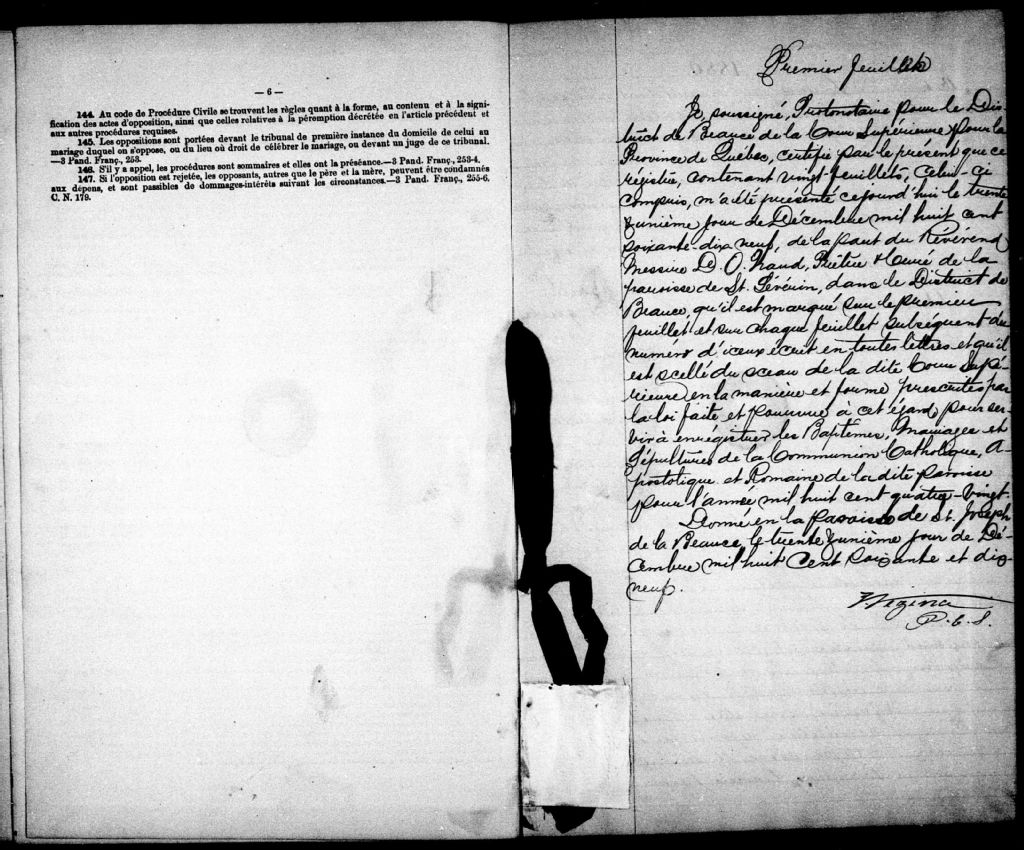 — 6 —
144. Au code de Procédure Civile se trouvent les règles quant à la forme, au contenu et à la signi-
fication des actes d'opposition, ainsi que celles relatives à la péremption décrétée en l'article précédent et
aux autres procédures requises.
145. Les oppositions sont portées devant le tribunal de première instance du domicile de celui au
mariage duquel on s'oppose, ou du lieu où droit de célébrer le mariage, ou devant un juge de ce tribunal.
—3 Pand. Franç., 253.
146. S'il y a appel, les procédures sont sommaires et elles ont la préséance.—3 Pand. Franç., 253-4.
147. Si l'opposition est rejetée, les opposants, autres que le père et la mère, peuvent être condamnés
aux dépens, et sont passibles de dommages-intérêts suivant les circonstances.—3 Pand. Franç., 255-6.
C. N. 179.
Premier feuillet
Je, soussigné, Protonotaire pour le Dis-
trict de Beauce de la Cour Supérieure pour la
Province de Québec, certifie par le présent que ce
régistre, contenant vingt feuillets, celui-ci
compris, m'a été présenté cejourd'hui le trente
unième jour de Décembre mil huit cent
soixante-dix neuf, de la part du Révérend
Messire D. O. Naud, Prêtre & Curé de la
paroisse de St. Sévérin, dans le District de
Beauce, qu'il est marqué sur le premier
feuillet et sur chaque feuillet subséquent du
numéro d'iceux écrit en toutes lettres et qu'il
est scellé du sceau de la dite Cour Supé-
rieure en la manière et forme prescrites par
la loi faite et pourvue à cet égard, pour ser-
vir à enrégistrer les Baptêmes, Mariages et
Sépultures de la Communion Catholique, A-
postolique et Romaine de la dite paroisse
pour l'année mil huit cent quatre-vingt.
Donné en la paroisse de St. Joseph
de la Beauce le trente unième jour de Dé-
cembre mil huit cent soixante et dix
neuf.
Vézina
P. C. S.